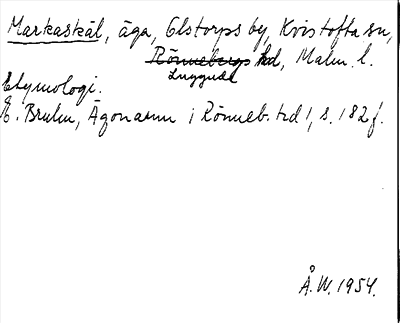 Markaskäl, äga, Glstorps by, Kvistofta sn,
Rönnebergs hd, Malm. l.
Luggude
Etymologi.
E. Bruhn, Ägonamn i Rönneb. hd 1, s. 182 f.
Å. W. 1954.